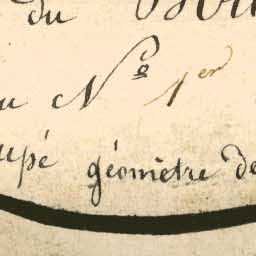 du
N.º 1er
upé géomètre de